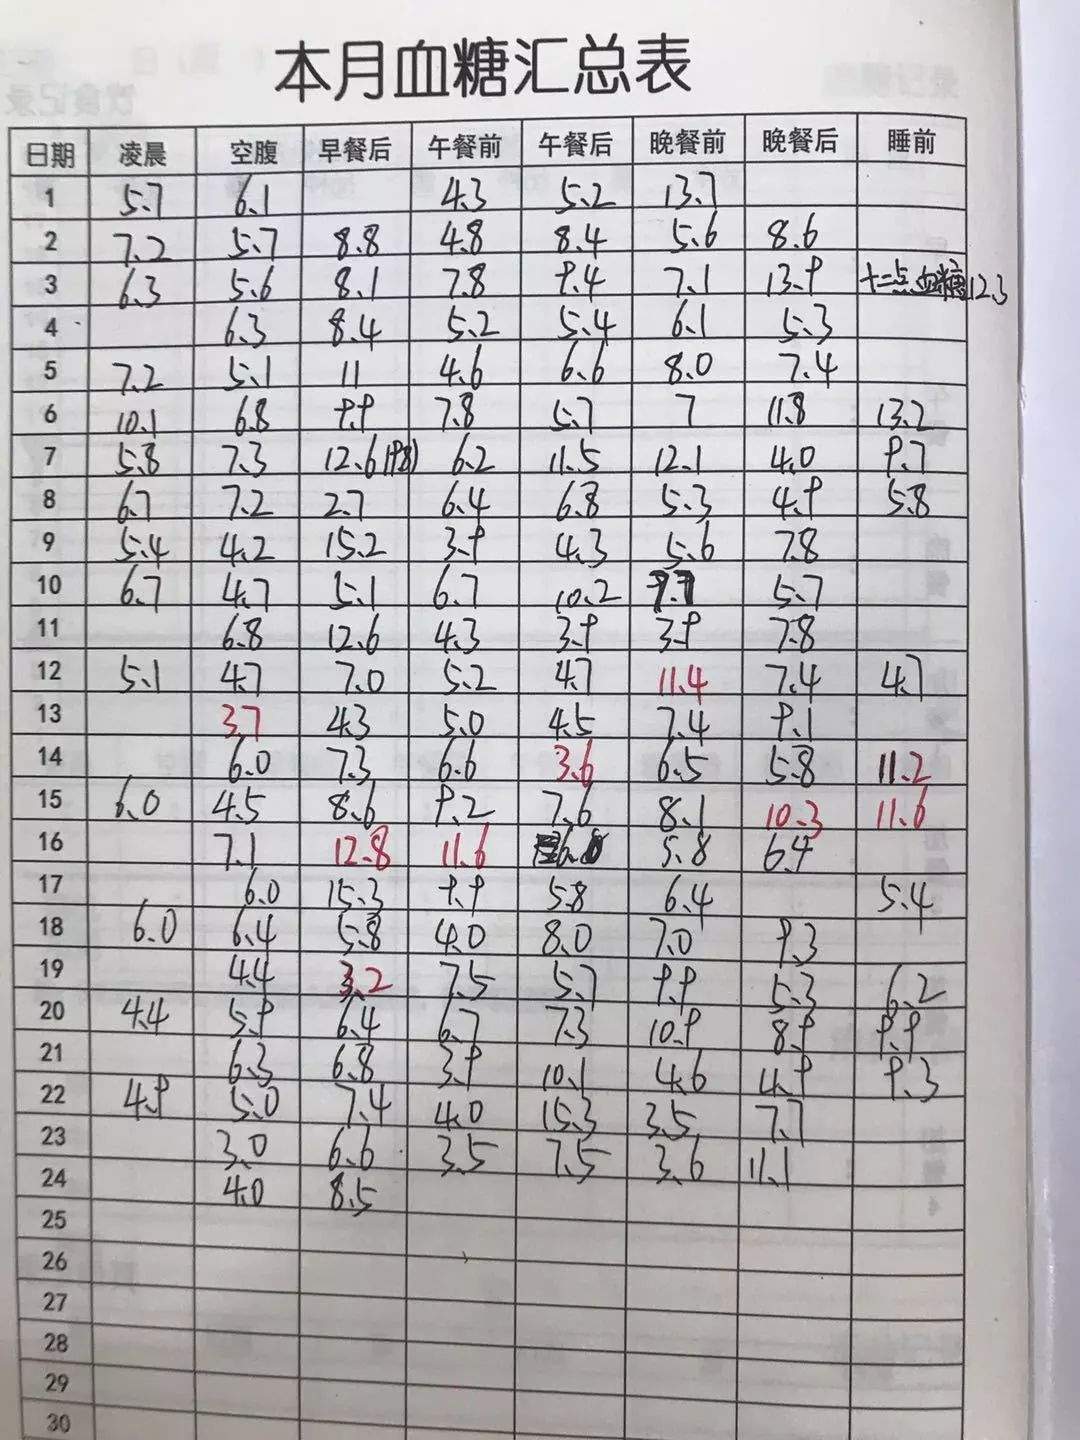 本月血糖汇总表
日期 凌晨 空腹 早餐后 午餐前 午餐后 晚餐前 晚餐后 睡前
1 5.7 6.1 4.3 5.2 13.7
2 7.2 5.7 8.8 4.8 8.4 5.6 8.6
3 6.3 5.6 8.1 7.8 9.4 7.1 13.9 十二点血糖12.3
4 6.3 8.4 5.2 5.4 6.1 5.3
5 7.2 5.1 11 4.6 6.6 8.0 7.4
6 10.1 6.8 9.9 7.8 5.7 7 11.8 13.2
7 5.8 7.3 12.6 6.2 11.5 12.1 4.0 9.7
8 6.7 7.2 2.7 6.4 6.8 5.3 4.9 5.8
9 5.4 4.2 15.2 3.9 4.3 5.6 7.8
10 6.7 4.7 5.1 6.7 10.2 5.7
11 6.8 12.6 4.3 3.9 3.9 7.8
12 5.1 4.7 7.0 5.2 4.7 11.4 7.4 4.7
13 3.7 4.3 5.0 4.5 7.4 9.1
14 6.0 7.3 6.6 3.6 6.5 5.8 11.2
15 6.0 4.5 8.6 9.2 7.6 8.1 10.3 11.6
16 7.1 12.8 11.6 5.8 6.4
17 6.0 15.3 9.9 5.8 6.4 5.4
18 6.0 6.4 5.8 4.0 8.0 7.0 9.3
19 4.4 3.2 7.5 5.7 9.9 5.3 6.2
20 4.4 5.9 6.4 6.7 7.3 10.9 8.9 9.9
21 6.3 6.8 3.9 10.1 4.6 4.9 9.3
22 4.9 5.0 7.4 4.0 15.3 3.5 7.7
23 3.0 6.6 3.5 7.5 3.6 11.1
24 4.0 8.5
25
26
27
28
29
30